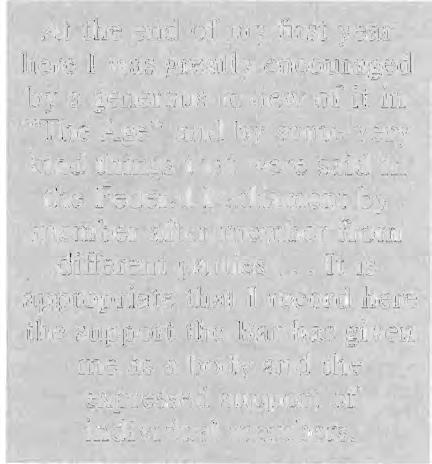 At the end of my first year
here I was greatly encouraged
by a generous review of it in
"The Age" and by some very
kind things that were said in
the Federal Parliament by
member after member from
different parties ... It is
appropriate that I record here
the support the Bar has given
me as a body and the
expressed support of
individual members.